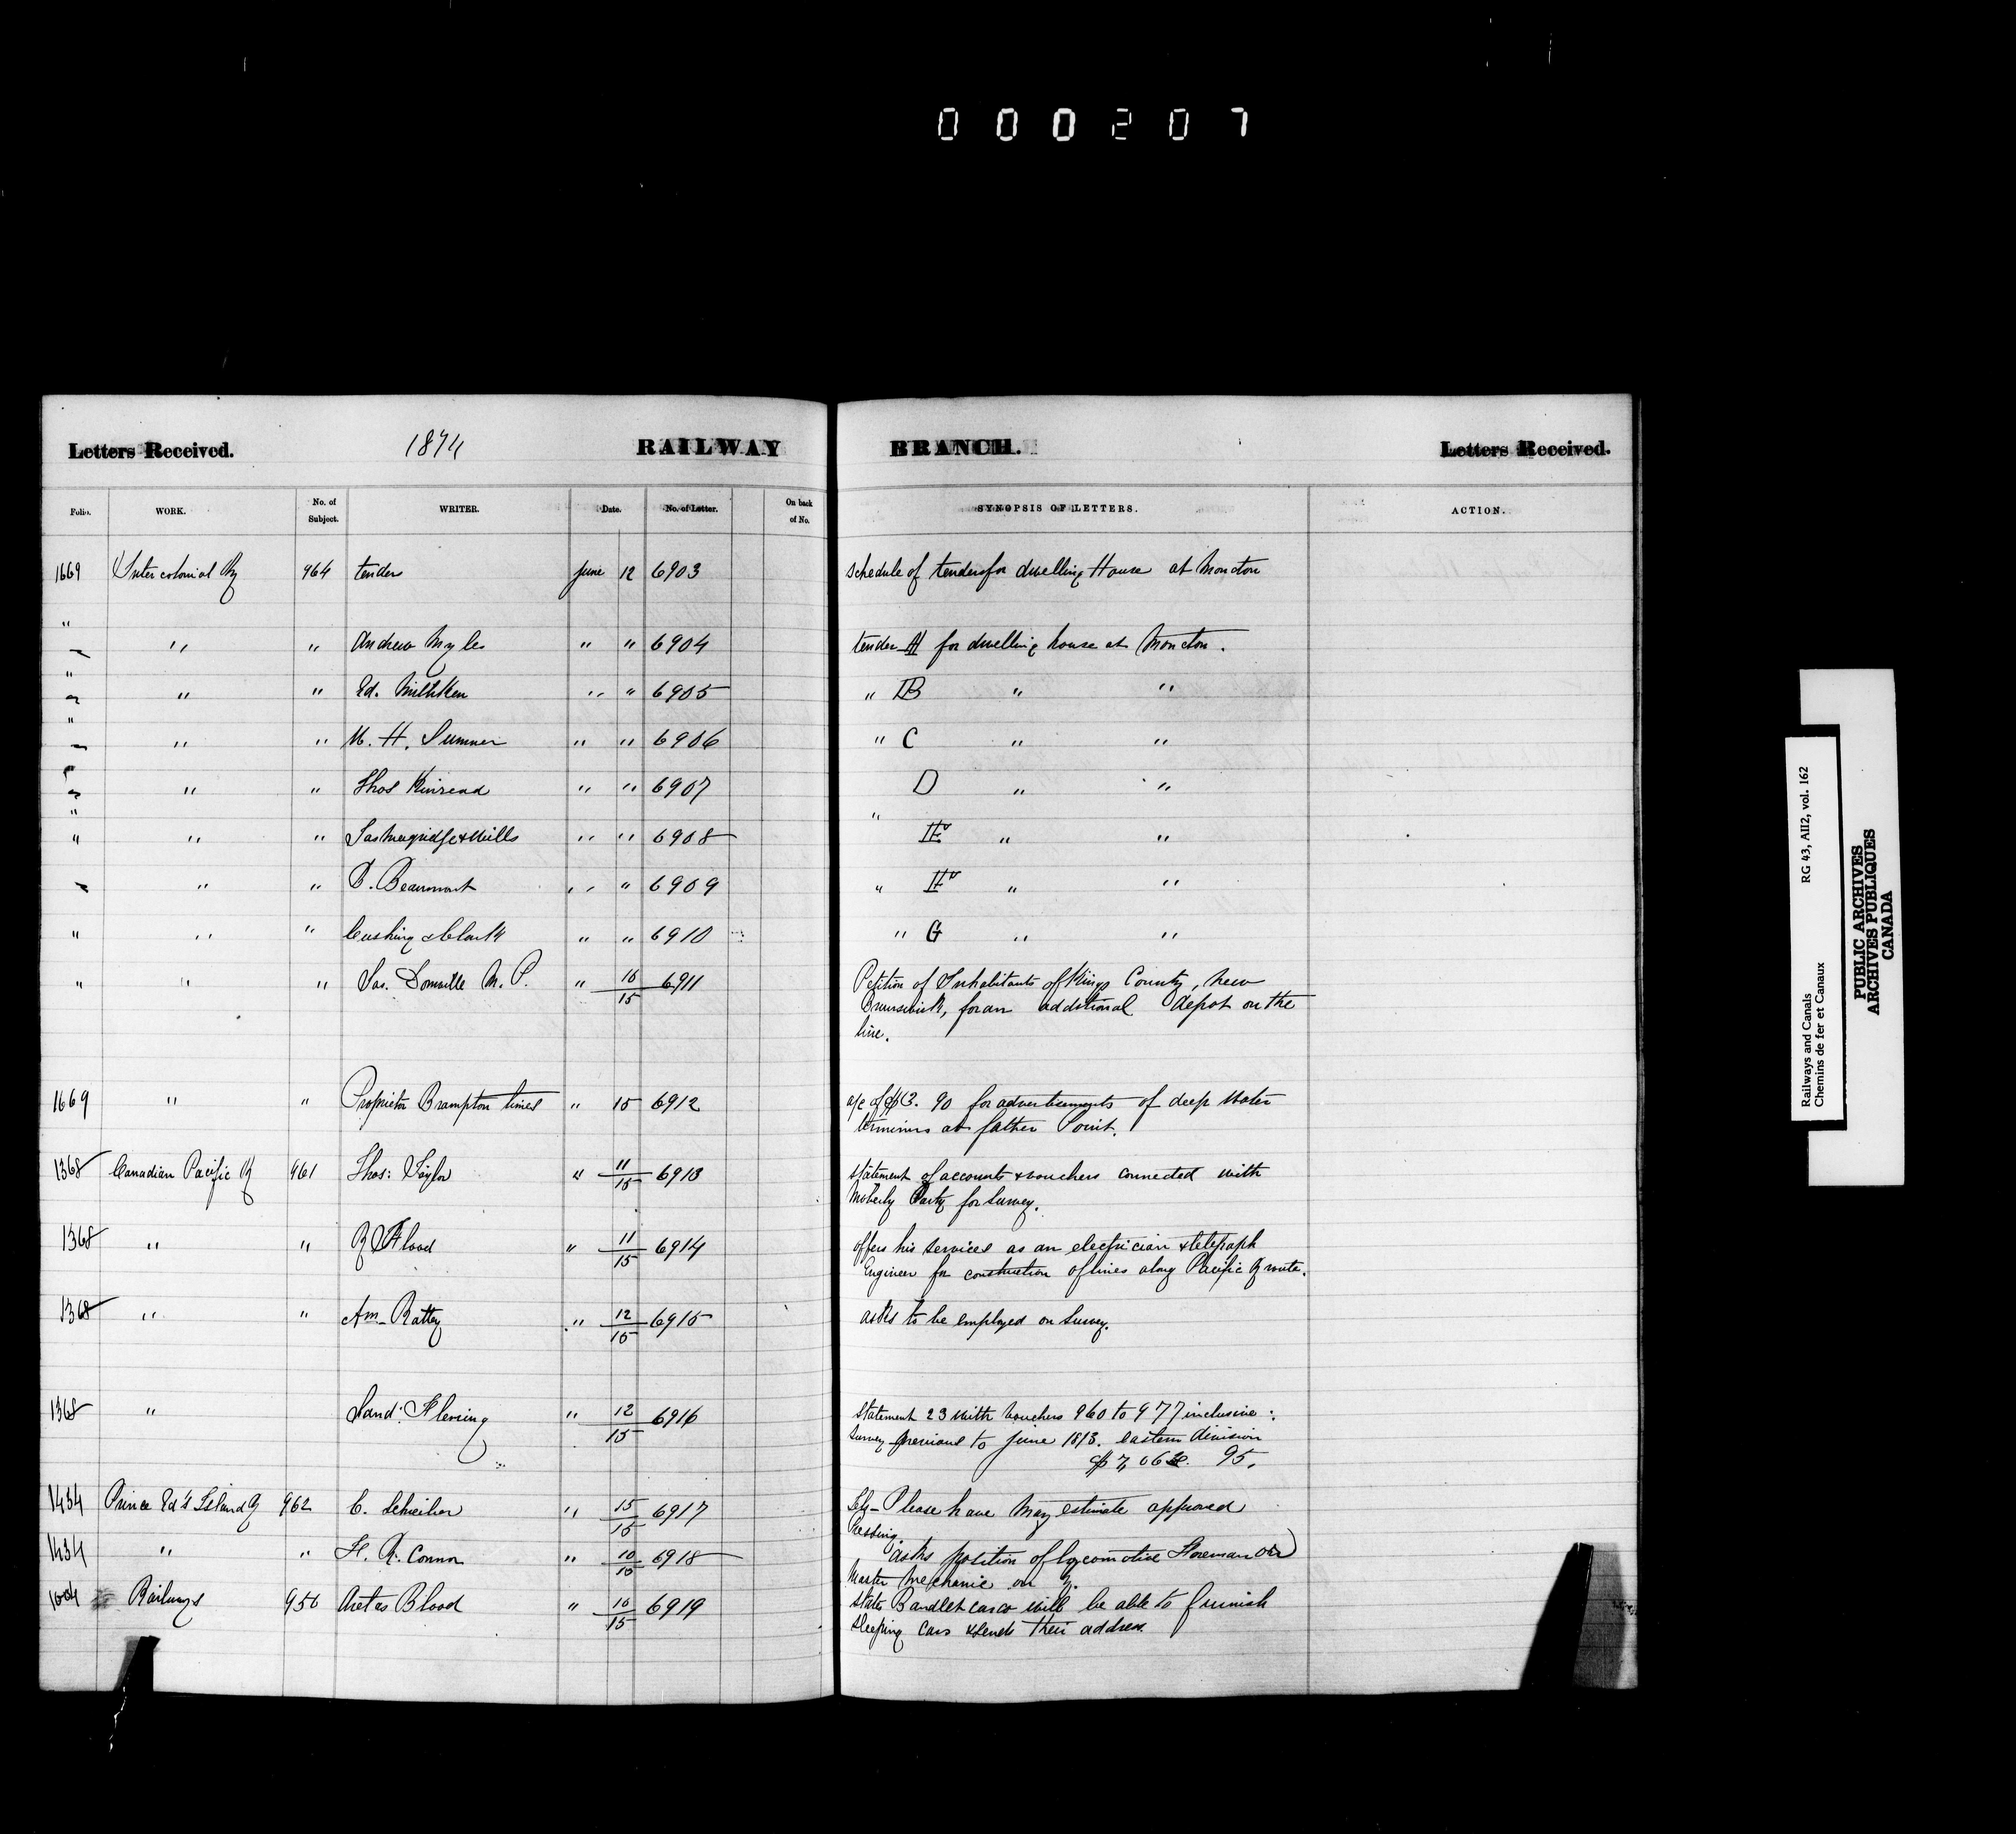 000207
Letters Received. 1874 RAILWAY BRANCH. Letters Received.
Folio. WORK. No. of Subject. WRITER. Date. No. of Letter. On back of No. SYNOPSIS OF LETTERS. ACTION.
1669 Intercolonial Ry 964 tenders June 12 6903 Schedule of tenders for dwelling House at Moncton
" " " Andrew Myles " " 6904 tender A for dwelling house at Moncton.
" " " Ed. " " 6905 " B " "
" " " M. H. Sumner " " 6906 " C " "
" " " Thos Kinread " " 6907 " D " "
" " " " " 6908 E " "
" " " B. Beaumont " " 6909 " F " "
" " " Cushing & Clark " " 6910 " G " "
" " " Jas. Domville M. P. " 10/15 6911 Petition of Inhabitants of Kings County, New
Brunswick, for an additional depot on the
line.
1669 " " Proprietor Brampton times " 15 6912 a/c of $3.90 for advertisements of deep Water
terminus at father Point.
1368 Canadian Pacific Ry 961 Thos: Taylor " 11/15 6913 Statement of accounts & vouchers connected with
Moberly Party for Survey.
1368 " " Flood " 11/15 6914 offers his services as an electrician & telegraph
Engineer for construction of lines along Pacific Ry route.
1368 " " Battey " 12/15 6915 asks to be employed on Survey.
1368 " Sand: Fleming " 12/15 6916 Statement 23 with Vouchers 960 to 977 inclusive:
Survey previous to June 1873. eastern division
95.
1434 Prince Ed's Island Ry 962 C. Schreiber " 15/15 6917 Please have May estimate approved
1434 " " Connor " 10/15 6918 asks position of locomotive Foreman or
Master Mechanic on Ry.
Railways 956 Aretas Blood " 10/15 6919 States will be able to furnish
Sleeping Cars & sends their address.
Railways and Canals RG 43, AII2, vol. 162
Chemins de fer et Canaux
PUBLIC ARCHIVES
ARCHIVES PUBLIQUES
CANADA